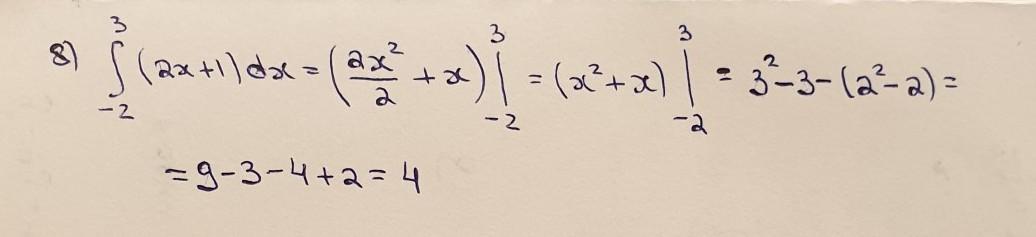 8) ∫_{-2}^{3} (2x+1)dx = (2x²/2 + x)|_{-2}^{3} = (x²+x)|_{-2}^{3} = 3²-3-(2²-2) =
= 9-3-4+2 = 4